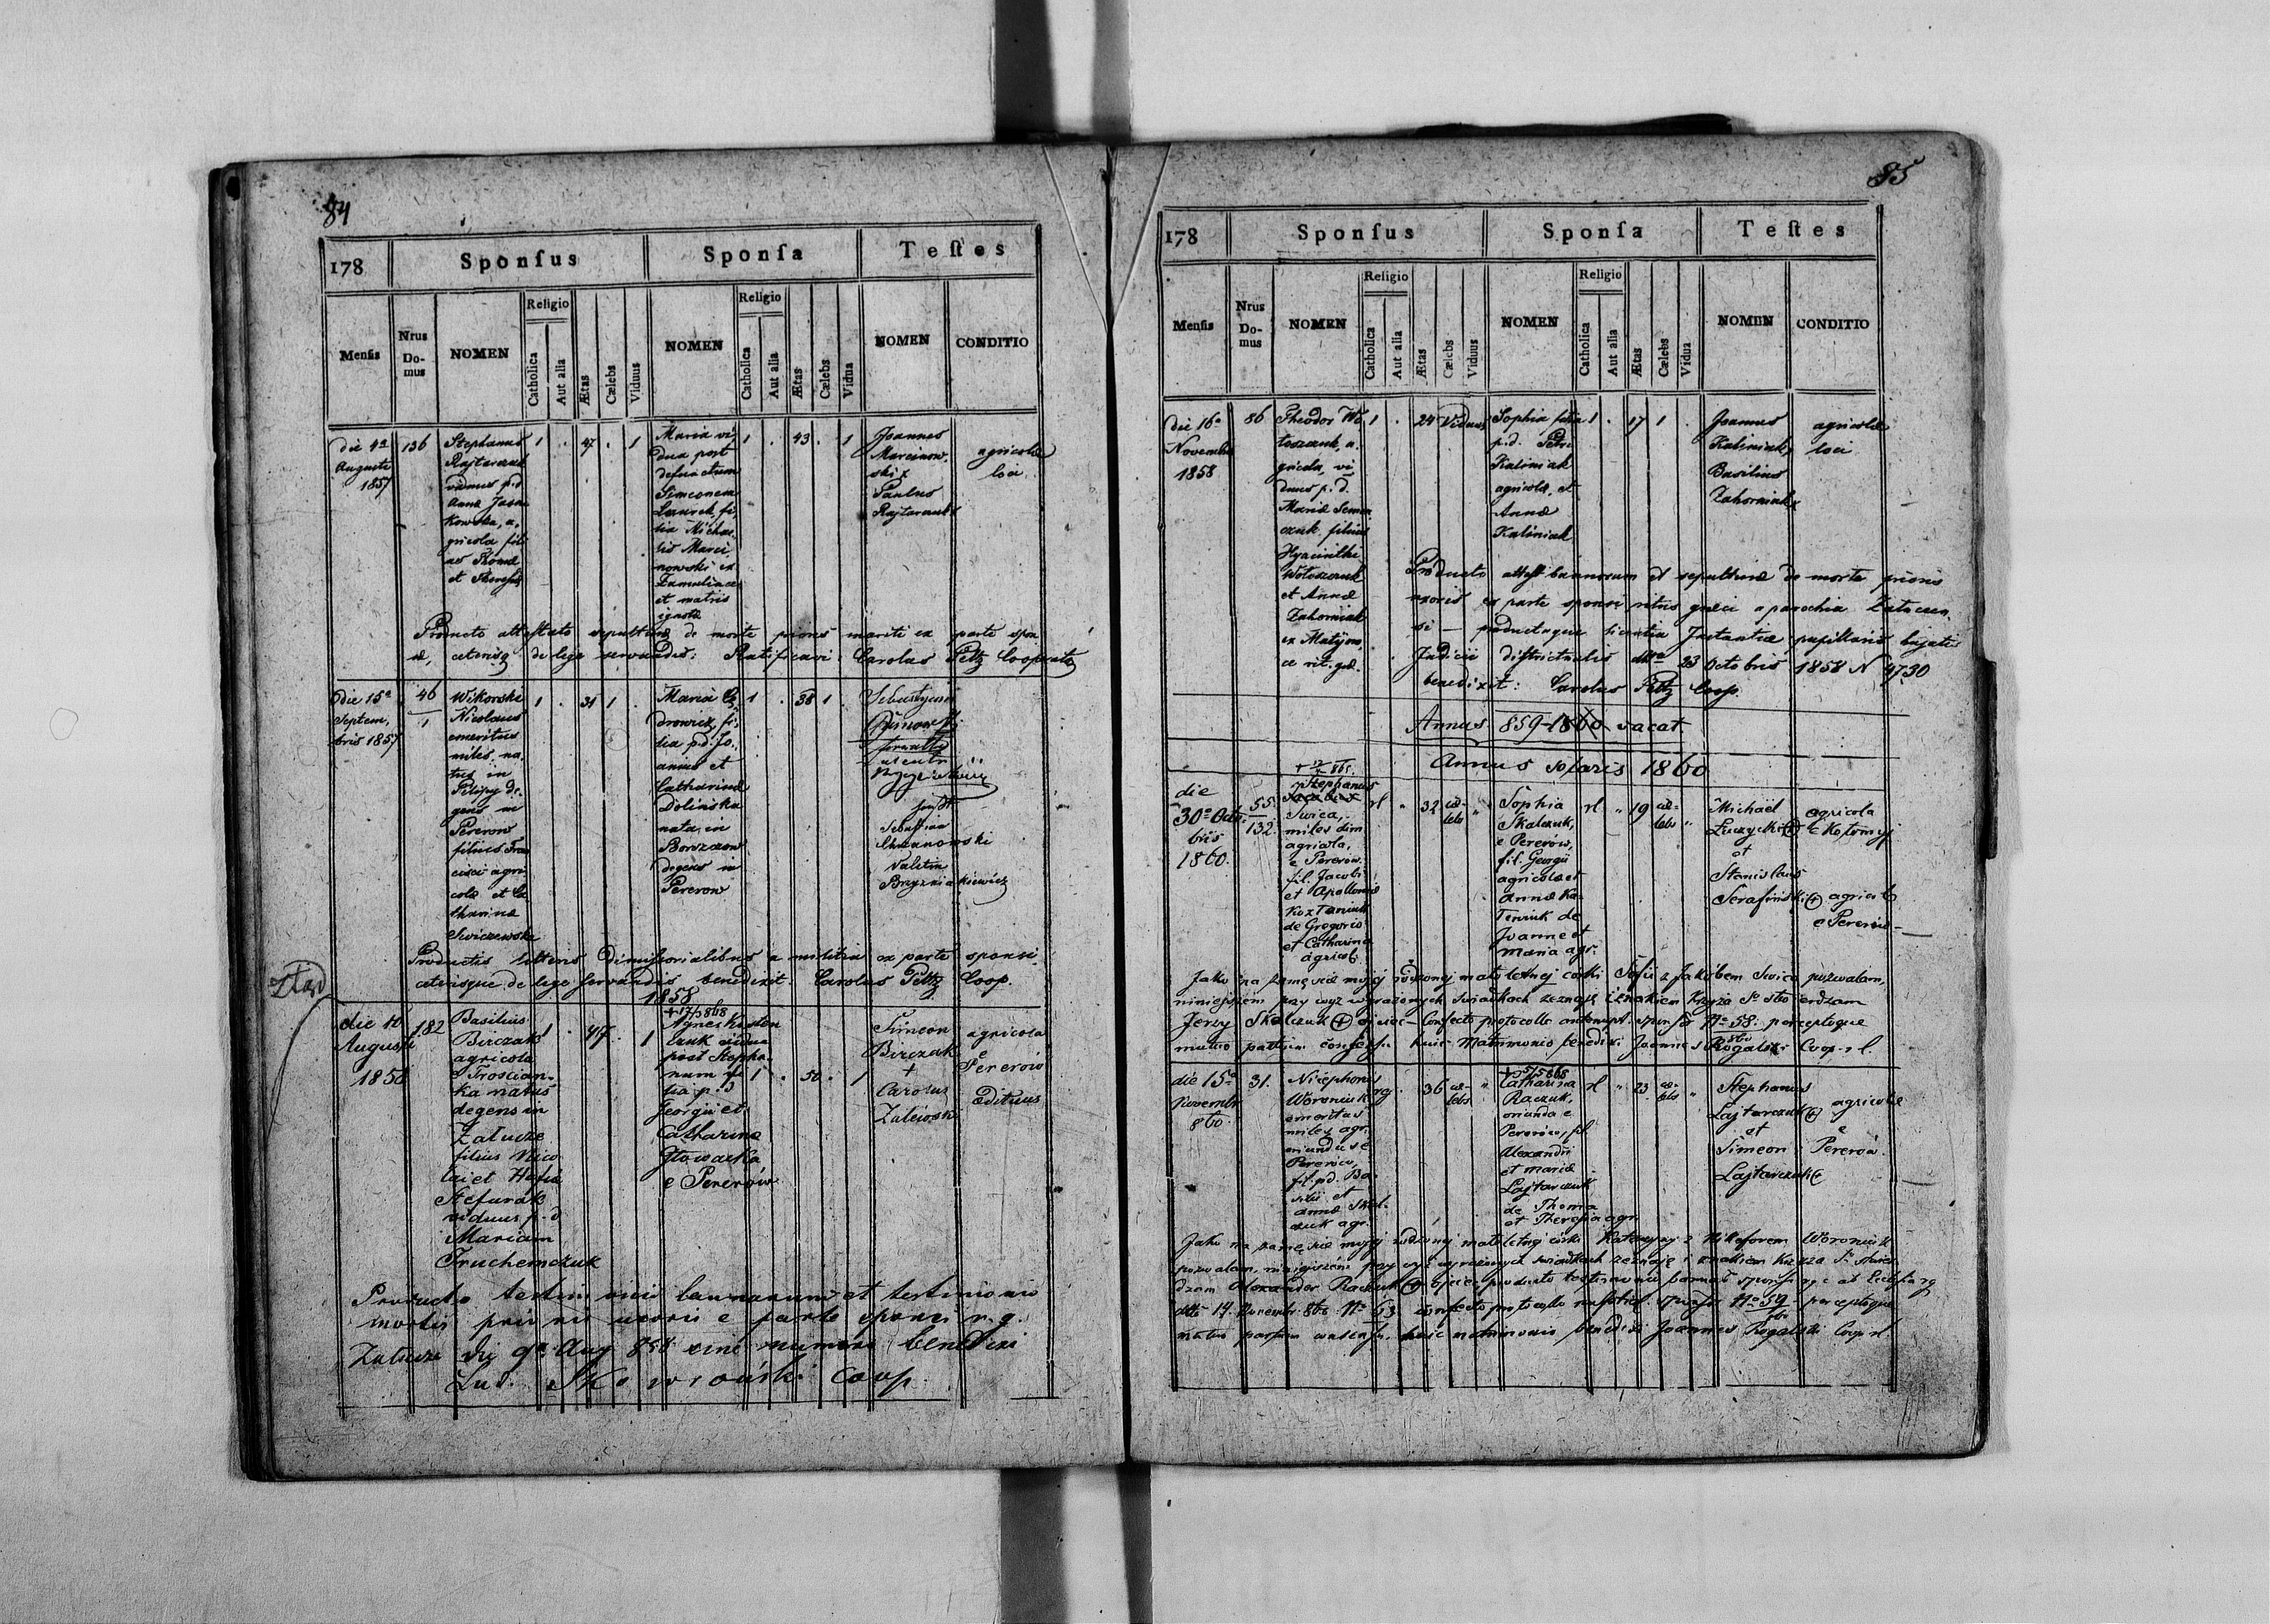 84
178
Sponſus
Sponſa
Teſtes
Menſis
Nrus Do-mus
NOMEN
Religio
Catholica
Aut alia
Ætas
Cælebs
Viduus
NOMEN
Religio
Catholica
Aut alia
Ætas
Cælebs
Vidua
NOMEN
CONDITIO
die 4a
Augusti
1857
136
Stephanus
Rajtarczuk
viduus p.d.
Anna Jasn
kowska, a,
gricola fili
us Thomæ
et Theresiæ
1 . 47 . 1
Maria vi,
dua post
defunctum
Simeonem
Lazurek, fi,
lia Michae,
lis Marci
nowski ex
Zamulince
et matris
ignotæ
1 . 43 . 1
Joannes
Marcinow,
ski x
Paulus
Rajtarczuk x
agricolæ
loci
Producto attestato sepulturæ de morte prioris mariti ex parte spon
sæ, ceterisq de lege servandis: Ratificavi Carolus Peltz Cooperator
die 15a
Septem,
bris 1857
46
1
Wikorski
Nicolaus
emeritus
miles, na,
tus in
degens in
Pererow
filius Fran
cisci agri
colæ et Ca
tharinæ
Swiczewska
1 . 31 1 .
Maria
drowicz, fi,
lia p.d. Jo,
annis et
Catharinæ
Dolinska
nata in
Borszczow
degens in
Pererow
1 . 38 1 .
Sebastyan
Sebastian
Chrzanowski
Valentin
Productis litteris Dimissorialibus a militia ex parte sponsi
ceterisque de lege servandis benedixit. Carolus Peltz Coop.
1858
die 10
Augusti
1858
182
Basilius
Birczak
agricola
e Troscian-
ka natus
degens in
Załucze
filius Nico
lai et Hafia
Stefurak
viduus p.d
Mariam
Truchemczuk
1 . 47 . 1
+ 17/3 868
Agnes
czuk vidua
post Stepha-
num fi
lia p.d
Georgii et
Catharinæ
Głowacka
e Pererów
1 . 50 . 1
Simeon
Birczak
+
Carolus
Zalewski
agricola
e
Pererów
ædituus
Producto testimonio bannorum et testimonio
mortis prioris uxoris e parte sponsi r. g.
Załucze dig 9a Aug 858 sine numero benedixi
Lud. Skowroński Coop.
85
178
Sponſus
Sponſa
Teſtes
Menſis
Nrus Do-mus
NOMEN
Religio
Catholica
Aut alia
Ætas
Cælebs
Viduus
NOMEN
Religio
Catholica
Aut alia
Ætas
Cælebs
Vidua
NOMEN
CONDITIO
die 16a
Novembr
1858
86
Theodor Wo
łoszczuk, a,
gricola, vi
duus p.d.
Mariæ Semen
czuk filius
Hyacinthi
Wołoszczuk
et Annæ
Zahorniak
ex Matijow,
ce rit. gr.
1 . 24 Viduus
Sophia filia
p.d. Petri
Kaliniak
agricolæ, et
Annæ
Kaliniak
1 . 17 1 .
Joannes
Kaliniak x
Basilius
Zahorniak x
agricolæ
loci
Producto attest bannorum et sepulturæ de morte prioris
uxoris ex parte sponsi ritus græci a parochia Załuczen,
si — productaque licentia Instantiæ pupillaris hujatis
Judicii districtualis dtto 23 Octobris 1858 N 4730
benedixit: Carolus Peltz Coop.
Annus 859-1860 vacat
Annus solaris 1860
die
30a Octo,
bris
1860.
55.
132.
Stephanus
Jacobus
Swica,
miles dim
agricola,
e Pererów.
fil. Jacobi
et Apolloniæ
Kozłaniuk
de Gregorio
et Catharina
agricol.
rl " 32 cæ-lebs "
Sophia
Skalczuk,
e Pererów,
fil. Georgii
agricolæ et
Annæ Ka-
Joanne et
Maria agr.
rl " 19 cæ-lebs "
Michaël
Łuczycki
et
Stanislaus
Serafinski
agricola
e Kołomyj
agricola
e Pererów
Jako na zamęście mojéj rodzonej małoletnej córki Sofii z Jakóbem Swicą pozwalam,
niniejszem przy wyż wyrażonych swiadkach zeznaję i znakiem Krzyża So stwierdzam
Jerzy Skalczuk + ojciec — Confecto protocollo antenupt. sponsor No 58. perceptoque
860
mutuo partium consensu huic Matrimonio benedixi Joannes Rogalski Coop. rl.
die 15a
Novembr
860.
31.
Nicephorus
Woroniuk
emeritus
miles agr.
oriundus e
Pererów,
fil. p.d. Ba-
silii et
Annæ Skal-
czuk agr.
rg . 36 cæ-lebs "
+ 5/5 868
Catharina
Raczuk,
orianda e
Pererów, fil.
Alexandri
et Mariæ
Lajtarczuk
de Thoma
et Theresia agr.
rl " 23 cæ-lebs "
Stephanus
Lajtarczuk
et
Simeon
Lajtarczuk
agricolæ
e
Pererów.
Jako na zamęście mojéj rodzonej małoletnej córki Katarzyny z Nikeforem Woroniuk
pozwalam, niniejszem przy wyż wyrażonych swiadkach zeznaję i znakiem Krzyża So stwier-
dzam Alexander Raczuk + ojciec, producto testimonio bannor. sponsi
dtto 14. Novembr. 860 No 63. confecto protocollo No 59 perceptoque
860
mutuo partium consensu huic matrimonio benedixi Joannes Rogalski Coop rl.